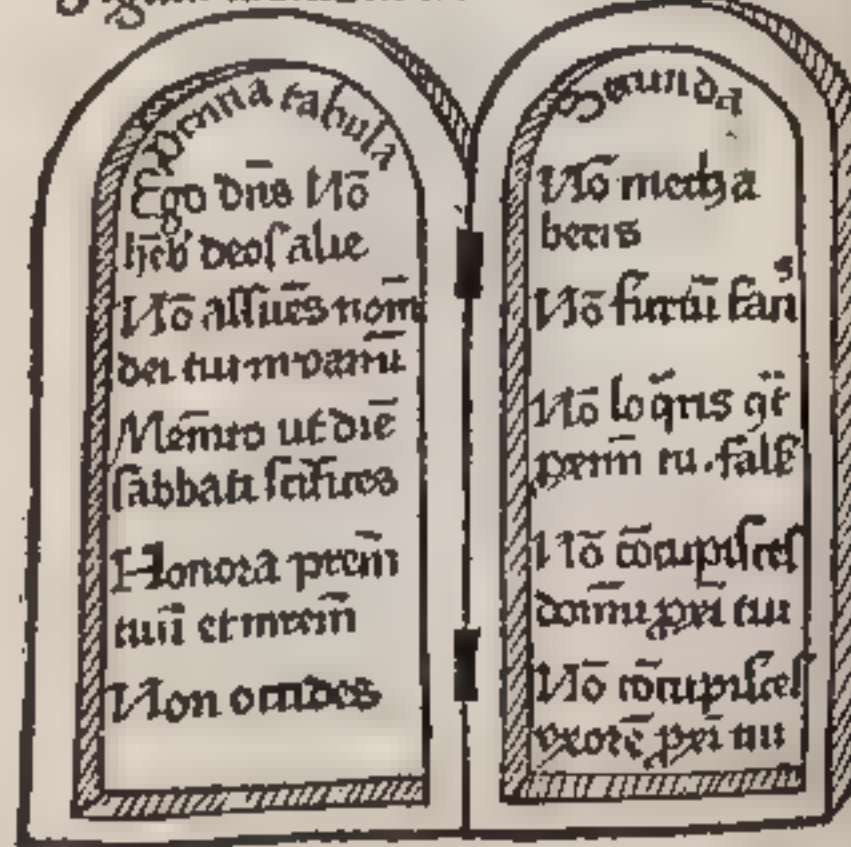 Prima tabula
Ego dn̄s Nō
hēb' deoſ alie
Nō aſſūes nom̄
dei tui in vanū
Mem̄to ut diē
ſabbati ſc̄ifices
Honora pr̄em̄
tuū et mr̄em̄
Non occides
Secunda
Nō mecha
beris
Nō furtū fan
Nō loq̄ris
tu . falſ
Nō cōcupiſceſ
dom̄ū pxī tui
Nō cōcupiſceſ
vxorē pxī tui